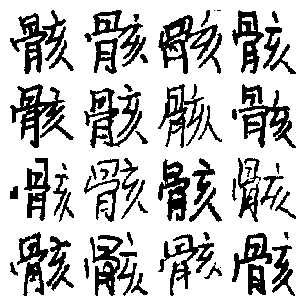 骸骸骸骸
骸骸骸骸
骸骸骸骸
骸骸骸骸